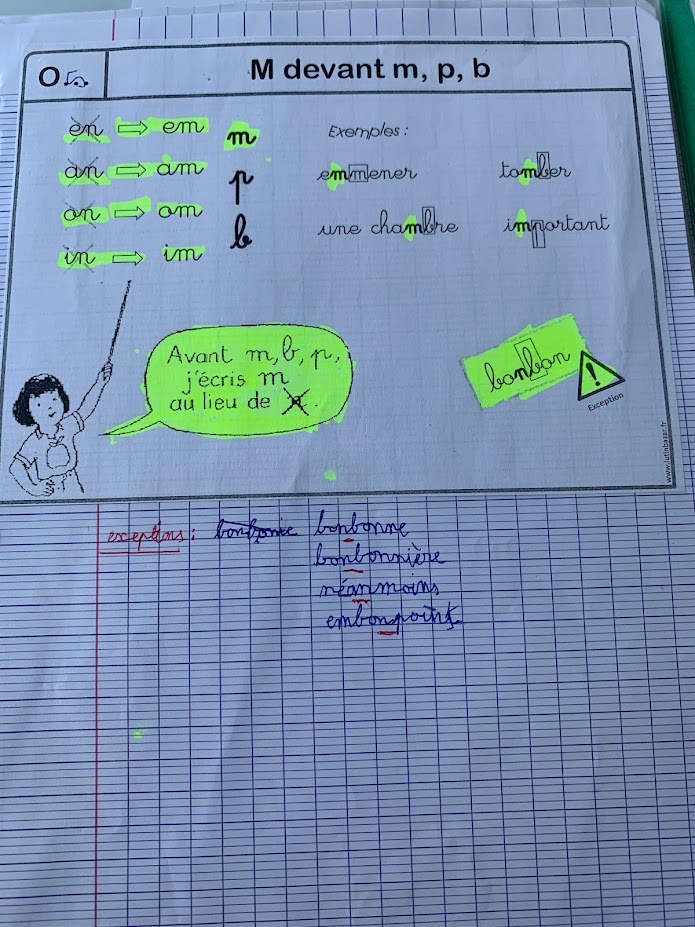 O M devant m, p, b
en ⇨ em m
an ⇨ am p
on ⇨ om b
in ⇨ im
Exemples :
emmener tomber
une chambre important
Avant m, b, p,
j'écris m
au lieu de n.
bonbon
Exception
www.lutinbazar.fr
exceptions : bonbonie bonbonne
bonbonnière
néanmoins
embonpoint